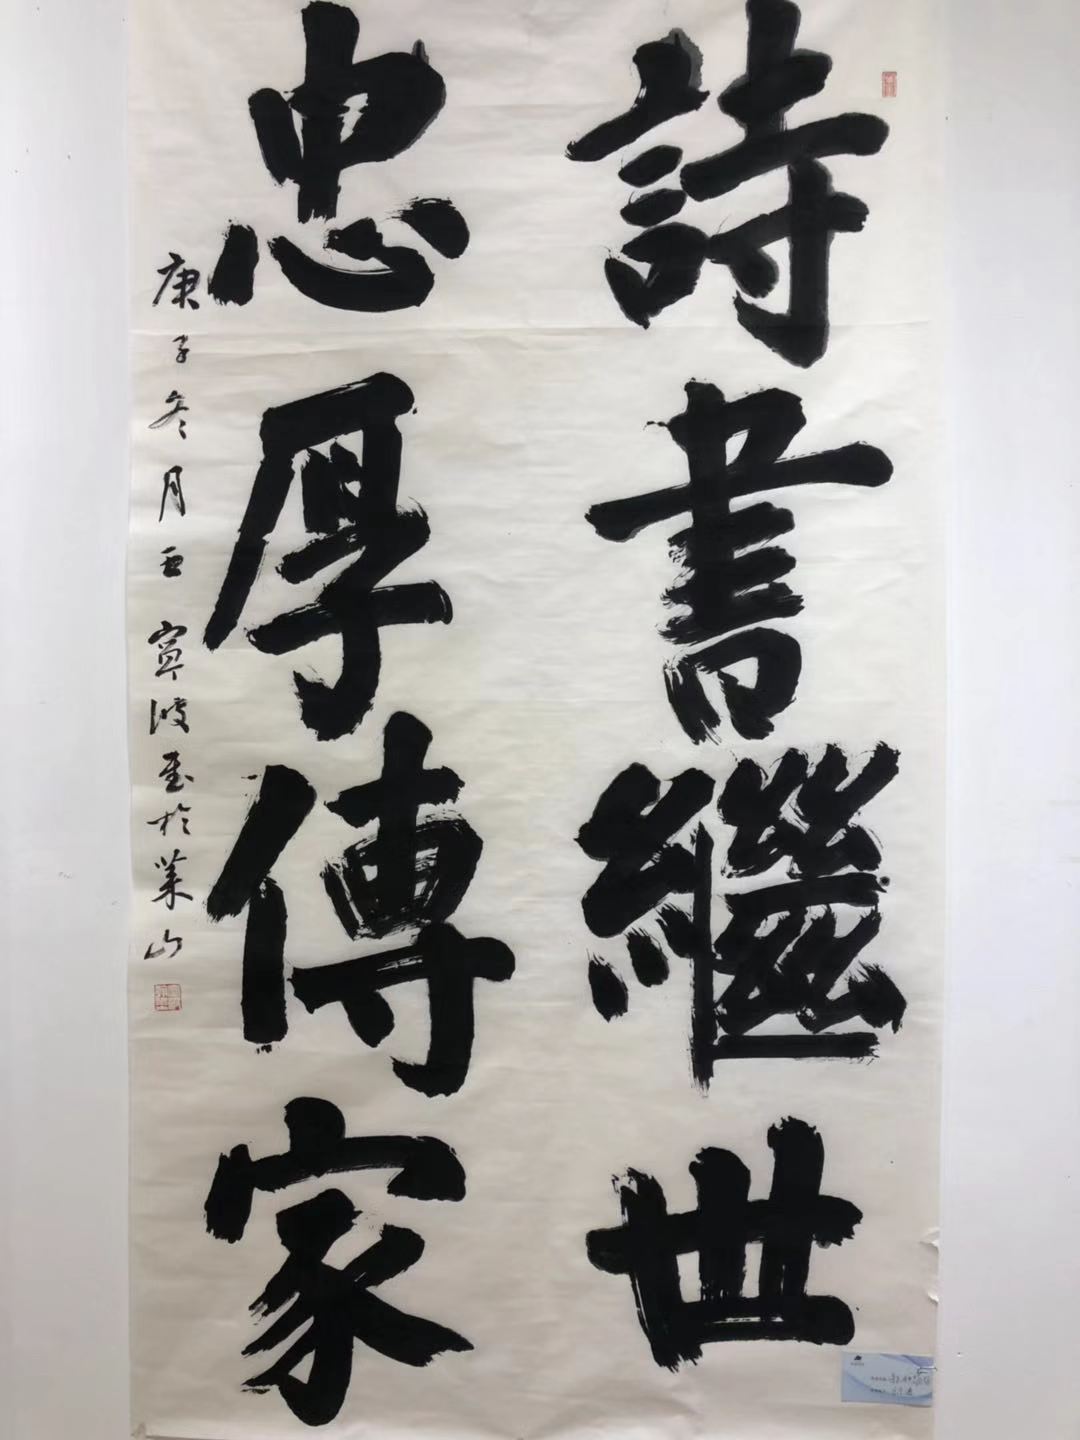 詩書繼世
忠厚傳家
庚子冬月 寧波書於萊山